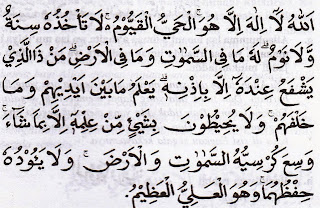 اَللهُ لَآ اِلٰهَ اِلَّا هُوَ، اَلْحَيُّ الْقَيُّوْمُ ەۚ لَا تَأْخُذُهٗ سِنَةٌ
وَّلَا نَوْمٌ ۗ لَهٗ مَا فِي السَّمٰوٰتِ وَمَا فِي الْاَرْضِ ۗ مَنْ ذَا الَّذِيْ
يَشْفَعُ عِنْدَهٗٓ اِلَّا بِاِذْنِهٖ ۗ يَعْلَمُ مَا بَيْنَ اَيْدِيْهِمْ وَمَا
خَلْفَهُمْ ۚ وَلَا يُحِيْطُوْنَ بِشَيْءٍ مِّنْ عِلْمِهٖٓ اِلَّا بِمَا شَآءَ ۚ
وَسِعَ كُرْسِيُّهُ السَّمٰوٰتِ وَالْاَرْضَ ۚ وَلَا يَئُوْدُهٗ
حِفْظُهُمَا ۚ وَهُوَ الْعَلِيُّ الْعَظِيْمُ.